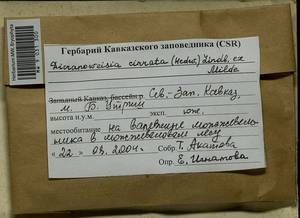 Гербарий Кавказского заповедника (CSR)
Dicranoweisia cirrata (Hedw.) Lindb. ex
Milde
Западный Кавказ, бассейн р. Сев.-Зап. Кавказ,
м. Б. Утриш
высота н.у.м. эксп. юж.
местообитание на валежине можжевель-
ника в можжевеловом лесу
"22" 08. 2004 г. Собр. Т. Акатова
Опр. Е. Игнатова
Herbarium MW, Bryophyta